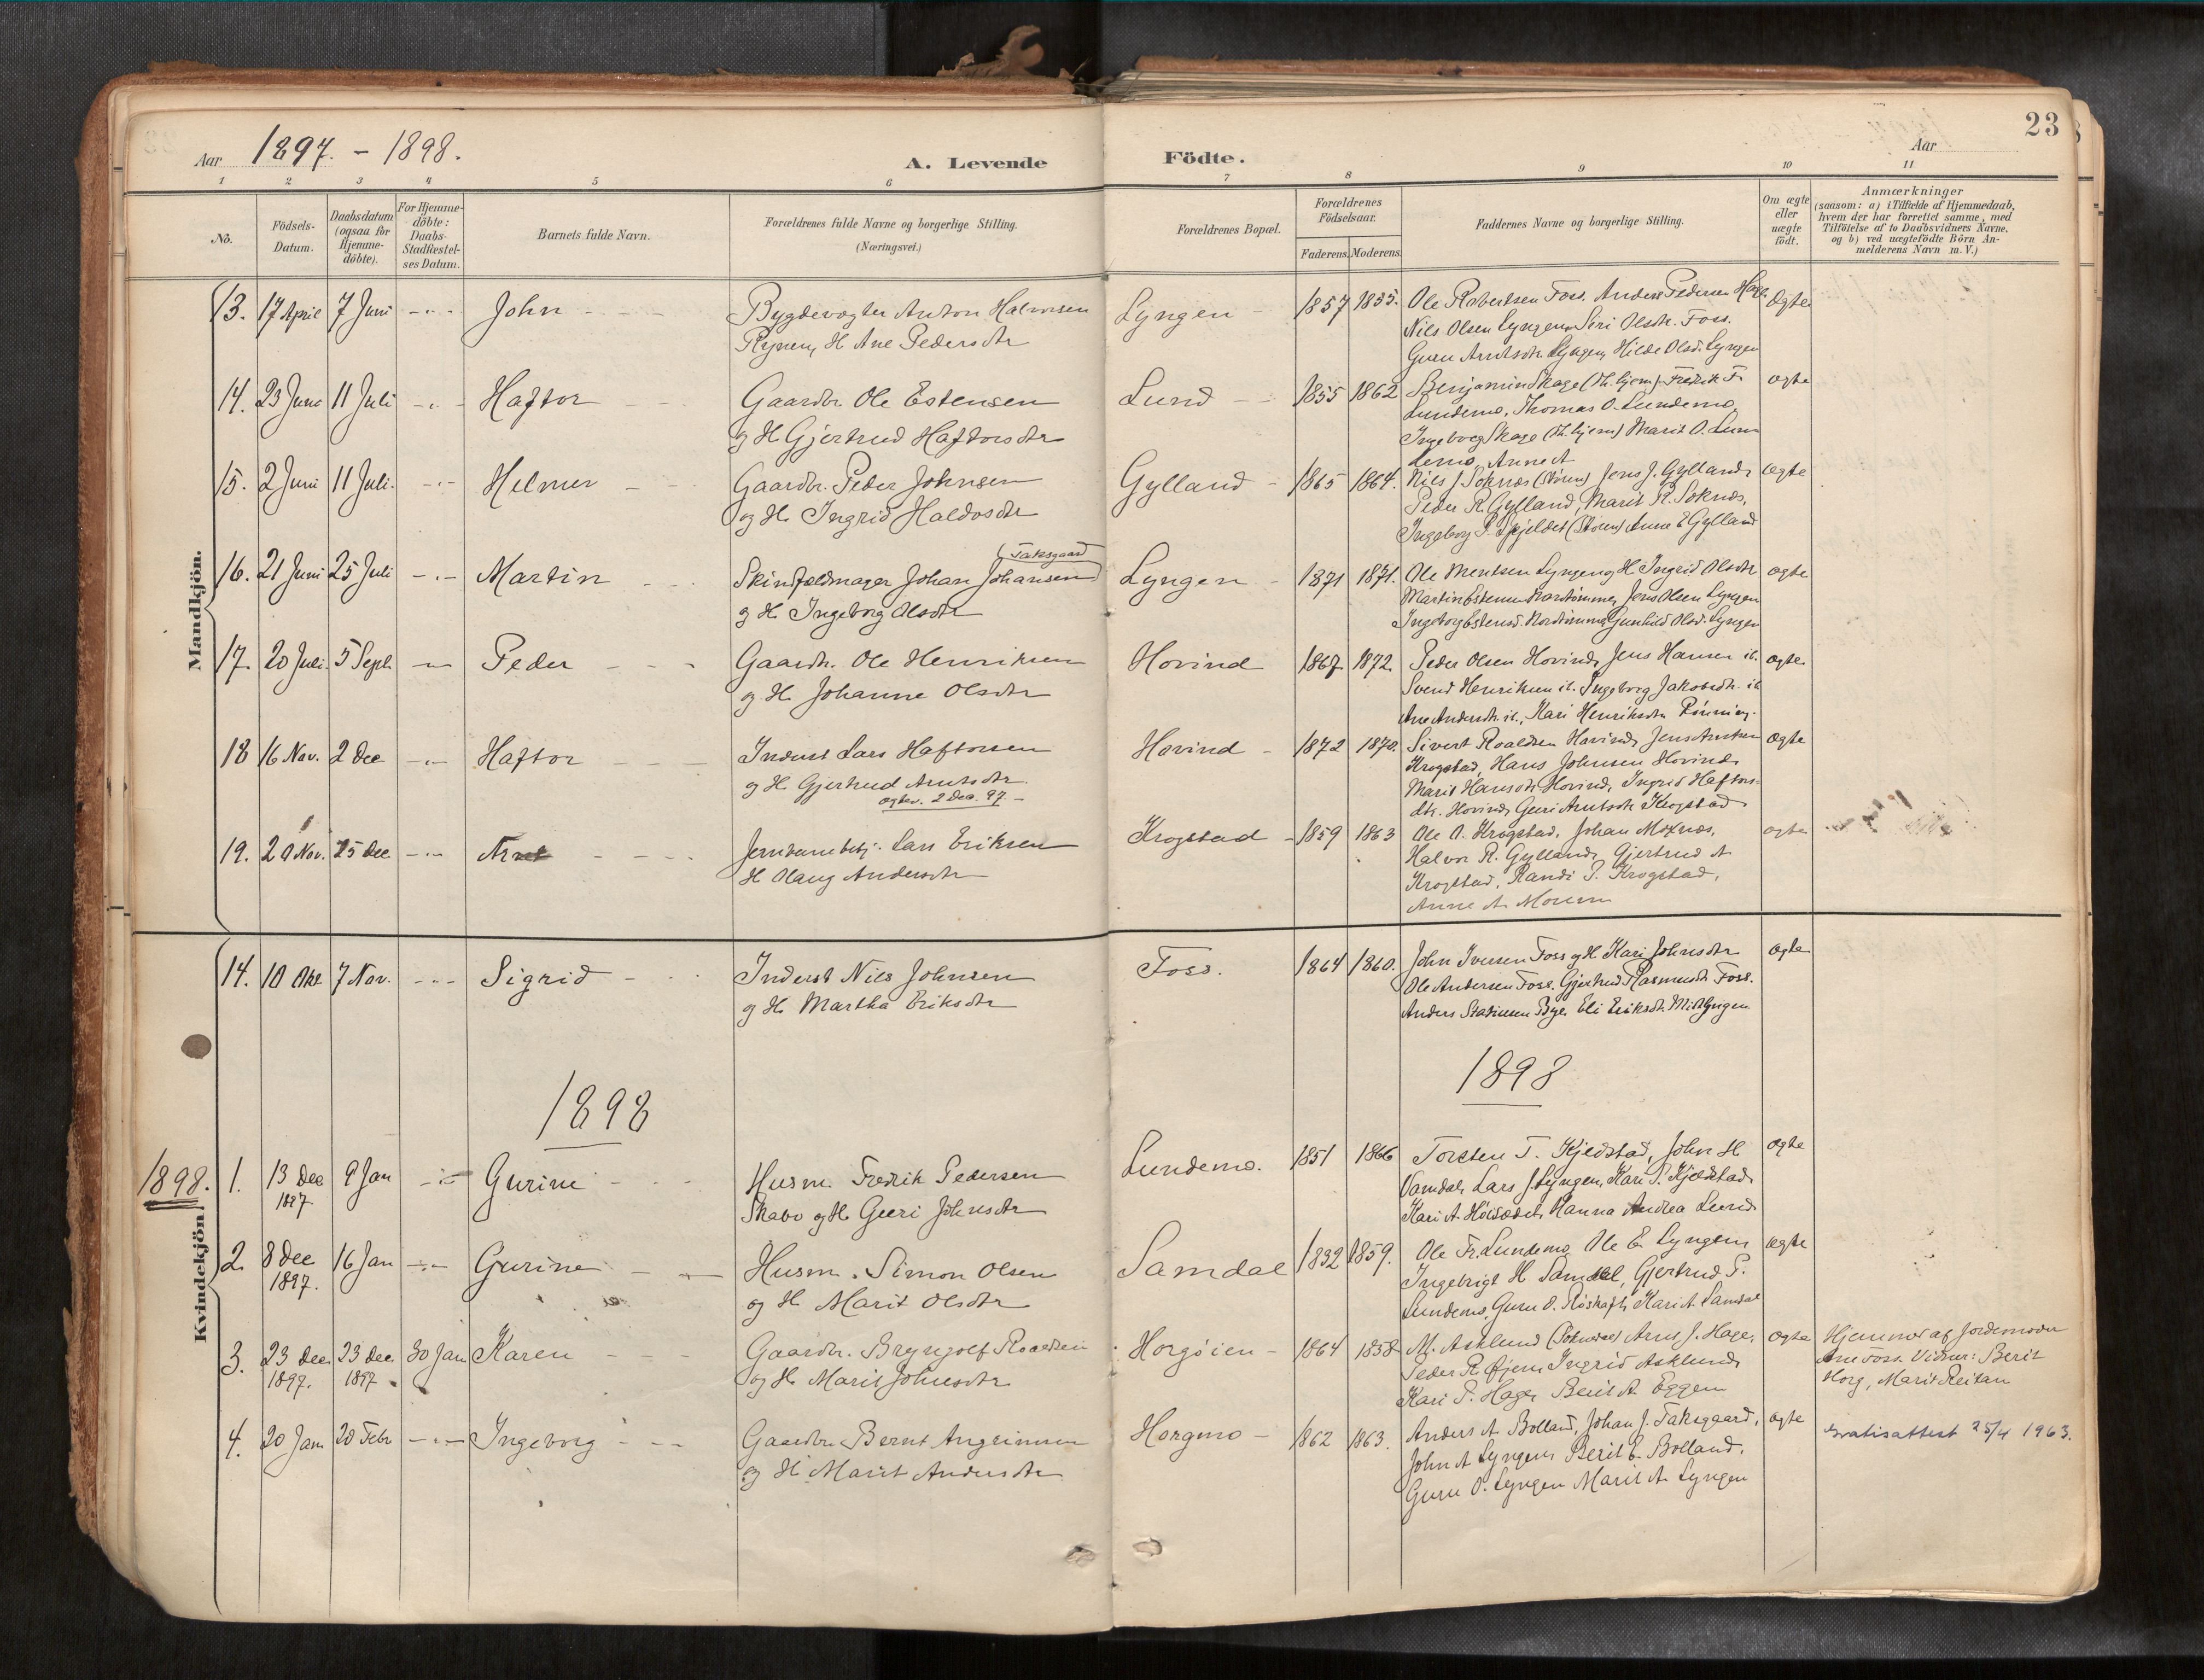 23
Aar 1897. - 1898.
A. Levende
Födte.
Aar
1 2 3 4 5 6 7 8 9 10 11
No.
Födsels-
Datum.
Daabsdatum
(ogsaa for
Hjemme-
döbte).
For Hjemme-
döbte:
Daabs-
Stadfæstel-
ses Datum.
Barnets fulde Navn.
Forældrenes fulde Navne og borgerlige Stilling.
(Næringsvei.)
Forældrenes Bopæl.
Forældrenes
Födselsaar.
Faderens. Moderens.
Faddernes Navne og borgerlige Stilling.
Om ægte
eller
uægte
födt.
Anmærkninger
(saasom: a) i Tilfælde af Hjemmedaab,
hvem der har forrettet samme, med
Tilföielse af to Daabsvidners Navne,
og b) ved uægtefödte Börn An-
melderens Navn m. V.)
Mandkjön.
13. 17 April 7 Juni John Bygdevogter Anton Halvorsen Lyngen 1857 1835. Ole Robertsen Foss. Anders Pedersen ægte
Rynen, H. Ane Pedersdtr Nils Olsen Lyngen, Siri Olsdtr. Foss.
Guru Arntsdtr. Lyngen, Hilde Olsd. Lyngen
14. 23 Juni 11 Juli Haftor Gaardbr Ole Estensen Lund 1855 1862 Benjamin Skage (Th. hjem) Fredrik F. ægte
og H. Gjertrud Haftorsdtr Lundemo, Thomas O. Lundemo,
Ingeborg Skage (Th. hjem) Marit O. Lun
demo, Anne A
15. 2 Juni 11 Juli. Helmer Gaardbr. Peder Johnsen Gylland 1865 1864. Nils J Soknæs (Støren) Jens J. Gylland, ægte
og H. Ingrid Haldosdtr Peder R. Gylland, Marit R. Soknæs,
Ingeborg P. Spjeldet (Støren) Anne E Gylland
16. 21 Juni 25 Juli Martin Skindfeldmager Johan Johansen (Taksgaard) Lyngen 1871 1871. Ole Mentsen Lyngen og H Ingrid Olsdtr ægte
og H. Ingeborg Olsdtr Martin Estensen Nordtømme, Jens Olsen Lyngen
Ingeborg Estensd. Nordtømme, Gunhild Olsd. Lyngen
17. 20 Juli. 5 Sept. Peder Gaardbr. Ole Henriksen Hovind 1867 1872. Peder Olsen Hovind, Jens Hansen ib. ægte
og H. Johanne Olsdtr Svend Henriksen ib. Ingeborg Jakobsdtr. ib
Ane Andersdtr. ib., Kari Henriksdtr Rönning.
18 16 Nov. 2 Dec Haftor Inderst Lars Haftorsen Hovind 1872 1870. Sivert Roaldsen Hovind, Jens Arntsen ægte
og H. Gjertrud Arntsdtr Krogstad, Hans Johnsen Hovind,
ægtev. 2 Dec. 97. Marit Hansdtr Hovind, Ingrid Haftors-
dtr. Hovind, Guri Arntsdtr Krogstad
19. 29 Nov. 25 Dec Arnt Jernbanebetj. Lars Eriksen Krogstad 1859 1863 Ole O. Krogstad, Johan Moxnæs, ægte
H Olaug Andersdtr Halvor R. Gylland, Gjertrud A
Krogstad, Randi P. Krogstad,
Anne A
Kvindekjön.
14. 10 Okt 7 Nov. Sigrid Inderst Nils Johnsen Foss. 1864 1860. John Iversen Foss og H Kari Johnsdtr ægte
og H. Martha Eriksdtr Ole Andersen Foss. Gjertrud Rasmusdtr Foss.
Anders Bye, Eli Eriksdtr. Midlyngen
1898
1898
1898. 1. 13 Dec 1897 9 Jan Gurine Husm. Fredrik Pedersen Lundemo. 1851 1866 Torsten T. Kjeldstad, John H ægte
Skabo og H. Guri Johnsdtr Vamdal, Lars J Lyngen, Kari P. Kjeldstad,
Kari A. Hanna Andrea Lund
2. 8 Dec 1897. 16 Jan Gurine Husm. Simon Olsen Samdal 1832 1859. Ole Fr. Lundemo, Ole E. Lyngen ægte
og H Marit Olsdtr Ingebrigt H Samdal, Gjertrud P.
Lundemo, Guru O. Røskaft, Kari A. Samdal
3. 23 Dec 1897. 23 Dec 1897 30 Jan Karen Gaardbr. Bryngolf Roaldsen Horgöien 1864 1858 M. Asklund Arnt J. Hage, ægte Hjemmed. af Jordemoder
og H. Marit Johnsdtr Peder R. Ingrid Asklund, Ane Foss. Vidner: Berit
Kari P. Hage, Berit A. Eggen Horg, Marit Reitan
4. 20 Jan 20 Febr Ingeborg Gaardbr. Bernt Angrimsen Horgmo 1862 1863. Anders A. Bolland, Johan J. Taksgaard, ægte Gratisattest 25/4 1963.
og H. Marit Andersdtr John A Lyngen, Berit E. Bolland,
Guru O. Lyngen Marit A. Lyngen